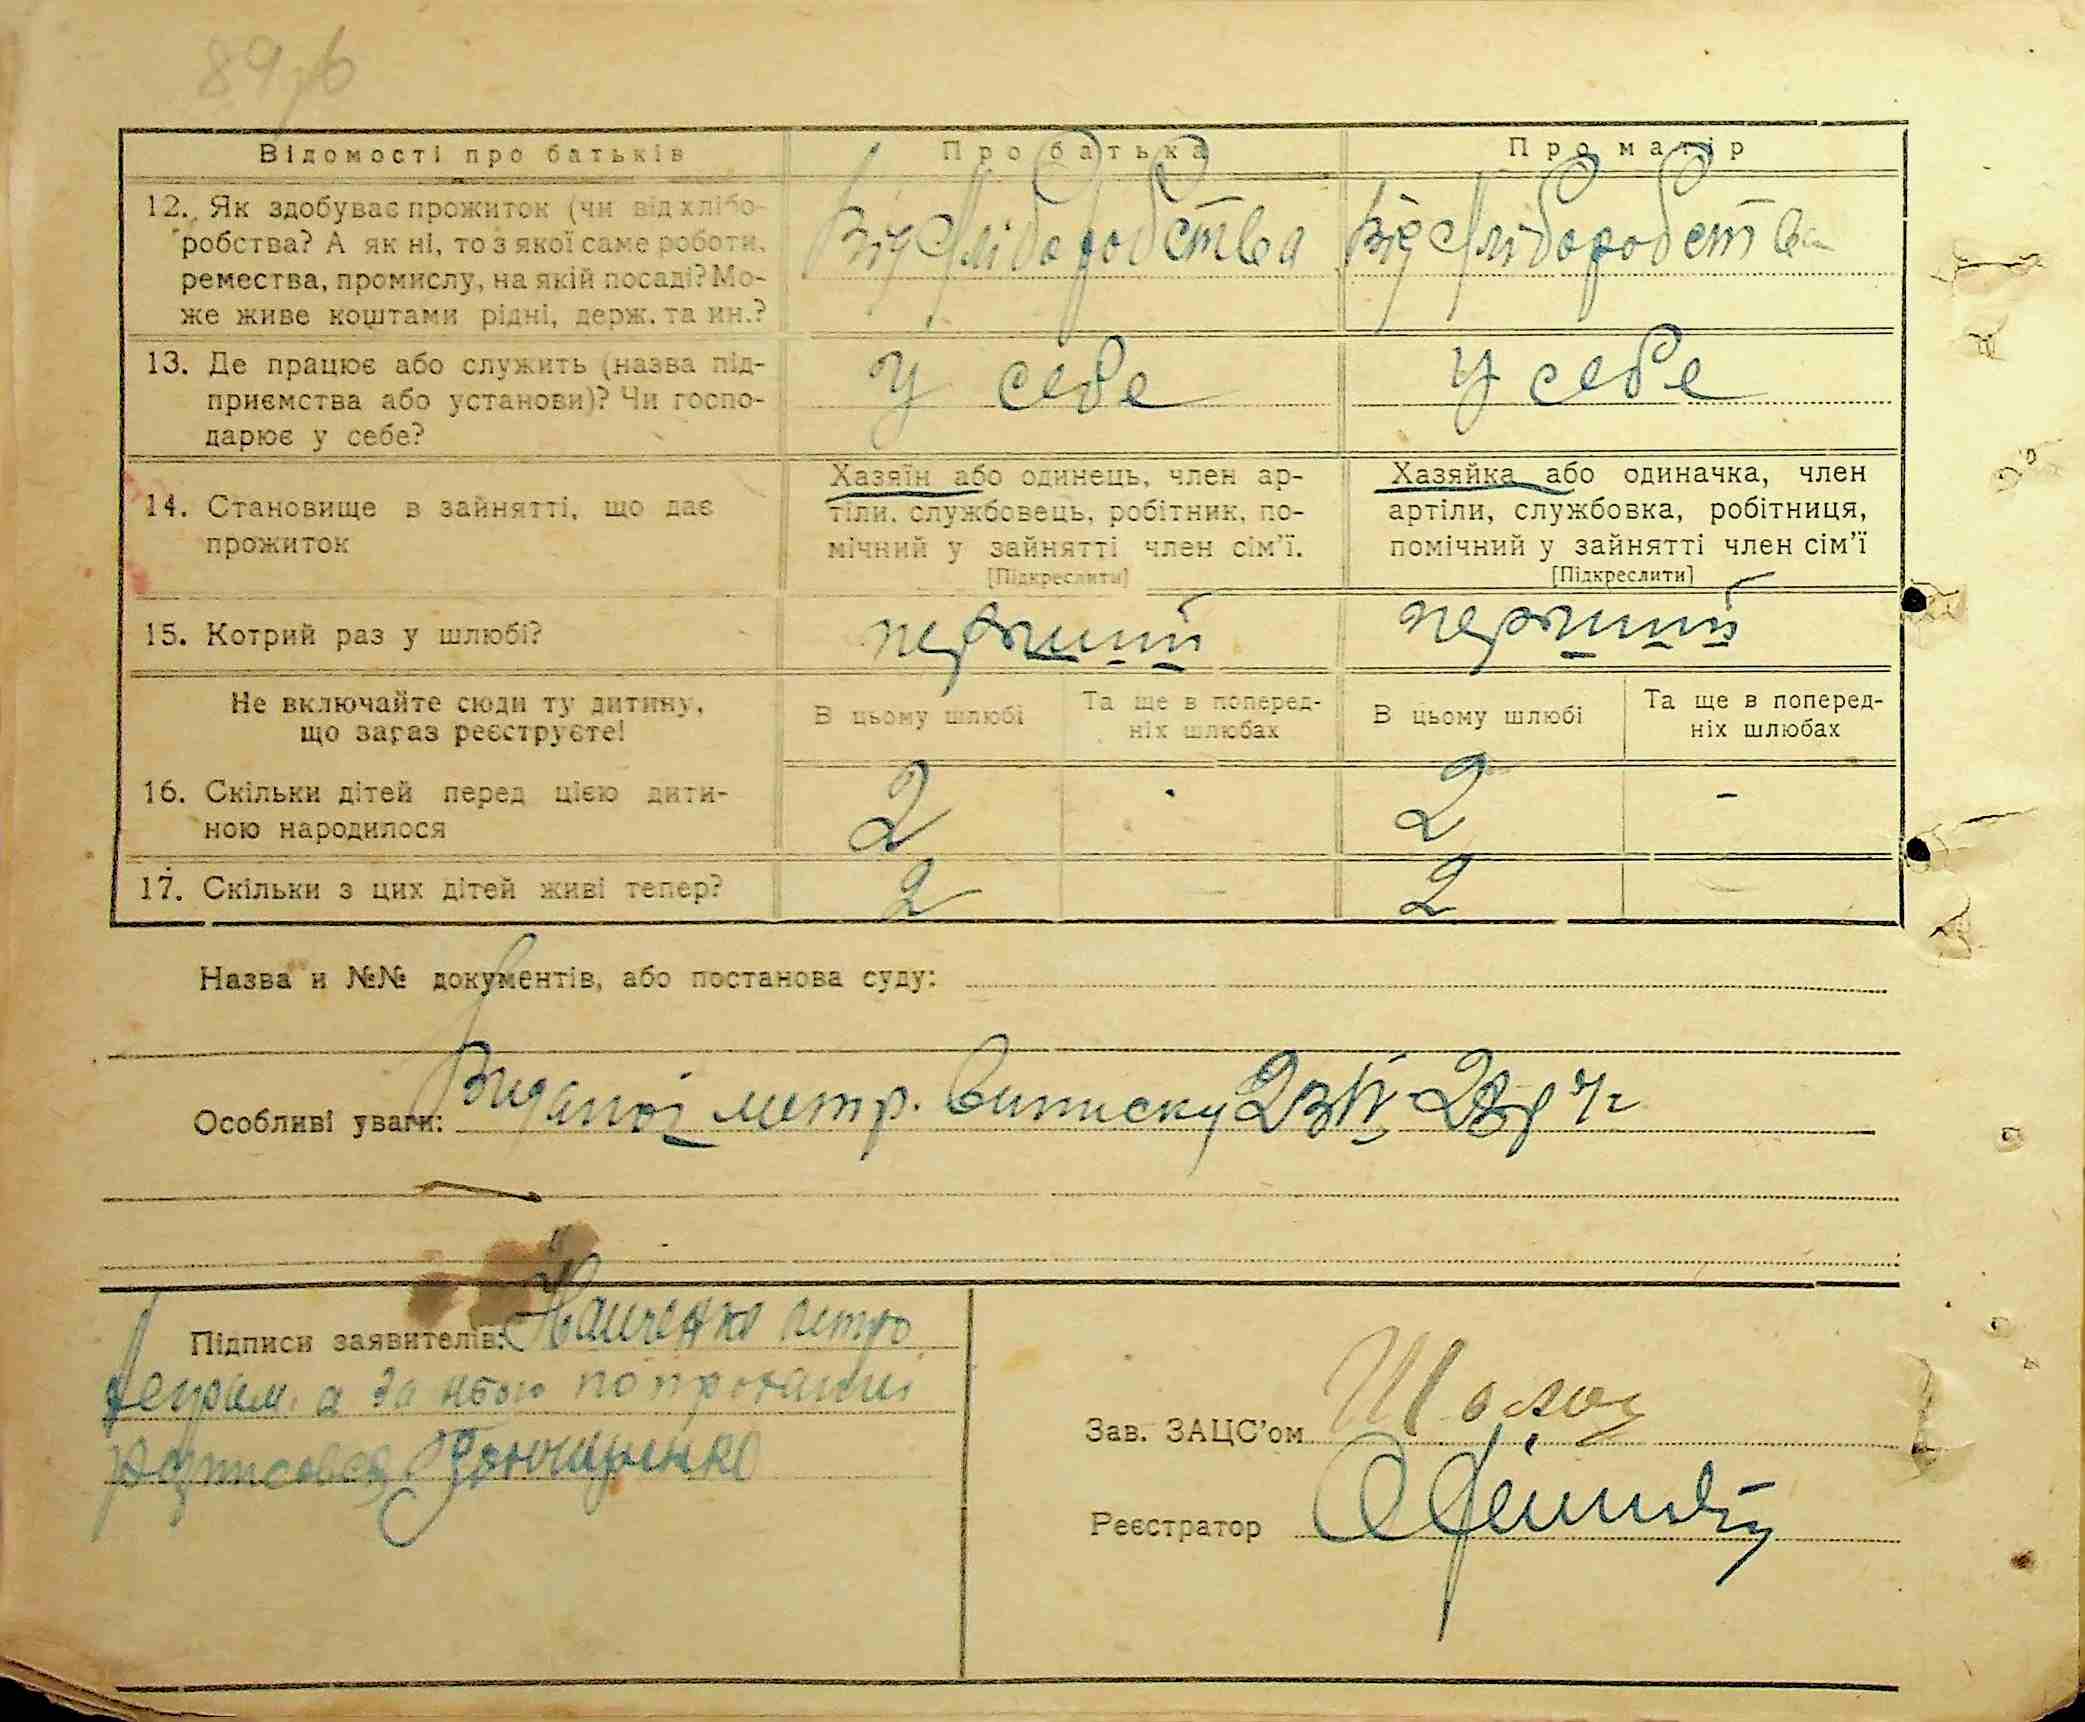 Відомості про батьків
Про батька
Про матір
12. Як здобуває прожиток (чи від хлібо-
робства? А як ні, то з якої саме роботи,
ремества, промислу, на якій посаді? Мо-
же живе коштами рідні, держ. та ин.?
Від хліборобства
Від хліборобства
13. Де працює або служить (назва під-
приємства або установи)? Чи госпо-
дарює у себе?
у себе
у себе
14. Становище в зайнятті, що дає
прожиток
Хазяїн або одинець, член ар-
тіли, службовець, робітник, по-
мічний у зайнятті член сім'ї.
[Підкреслити]
Хазяйка або одиначка, член
артіли, службовка, робітниця,
помічний у зайнятті член сім'ї
[Підкреслити]
15. Котрий раз у шлюбі?
перший
перший
Не включайте сюди ту дитину,
що зараз реєструєте!
В цьому шлюбі
Та ще в поперед-
ніх шлюбах
В цьому шлюбі
Та ще в поперед-
ніх шлюбах
16. Скільки дітей перед цією дити-
ною народилося
2
2 -
17. Скільки з цих дітей живі тепер?
2 -
2 -
Назва и №№ документів, або постанова суду:
Особливі уваги: метр. виписку
Підписи заявителів: Петро
а за його
Зав. ЗАЦС'ом
Реєстратор